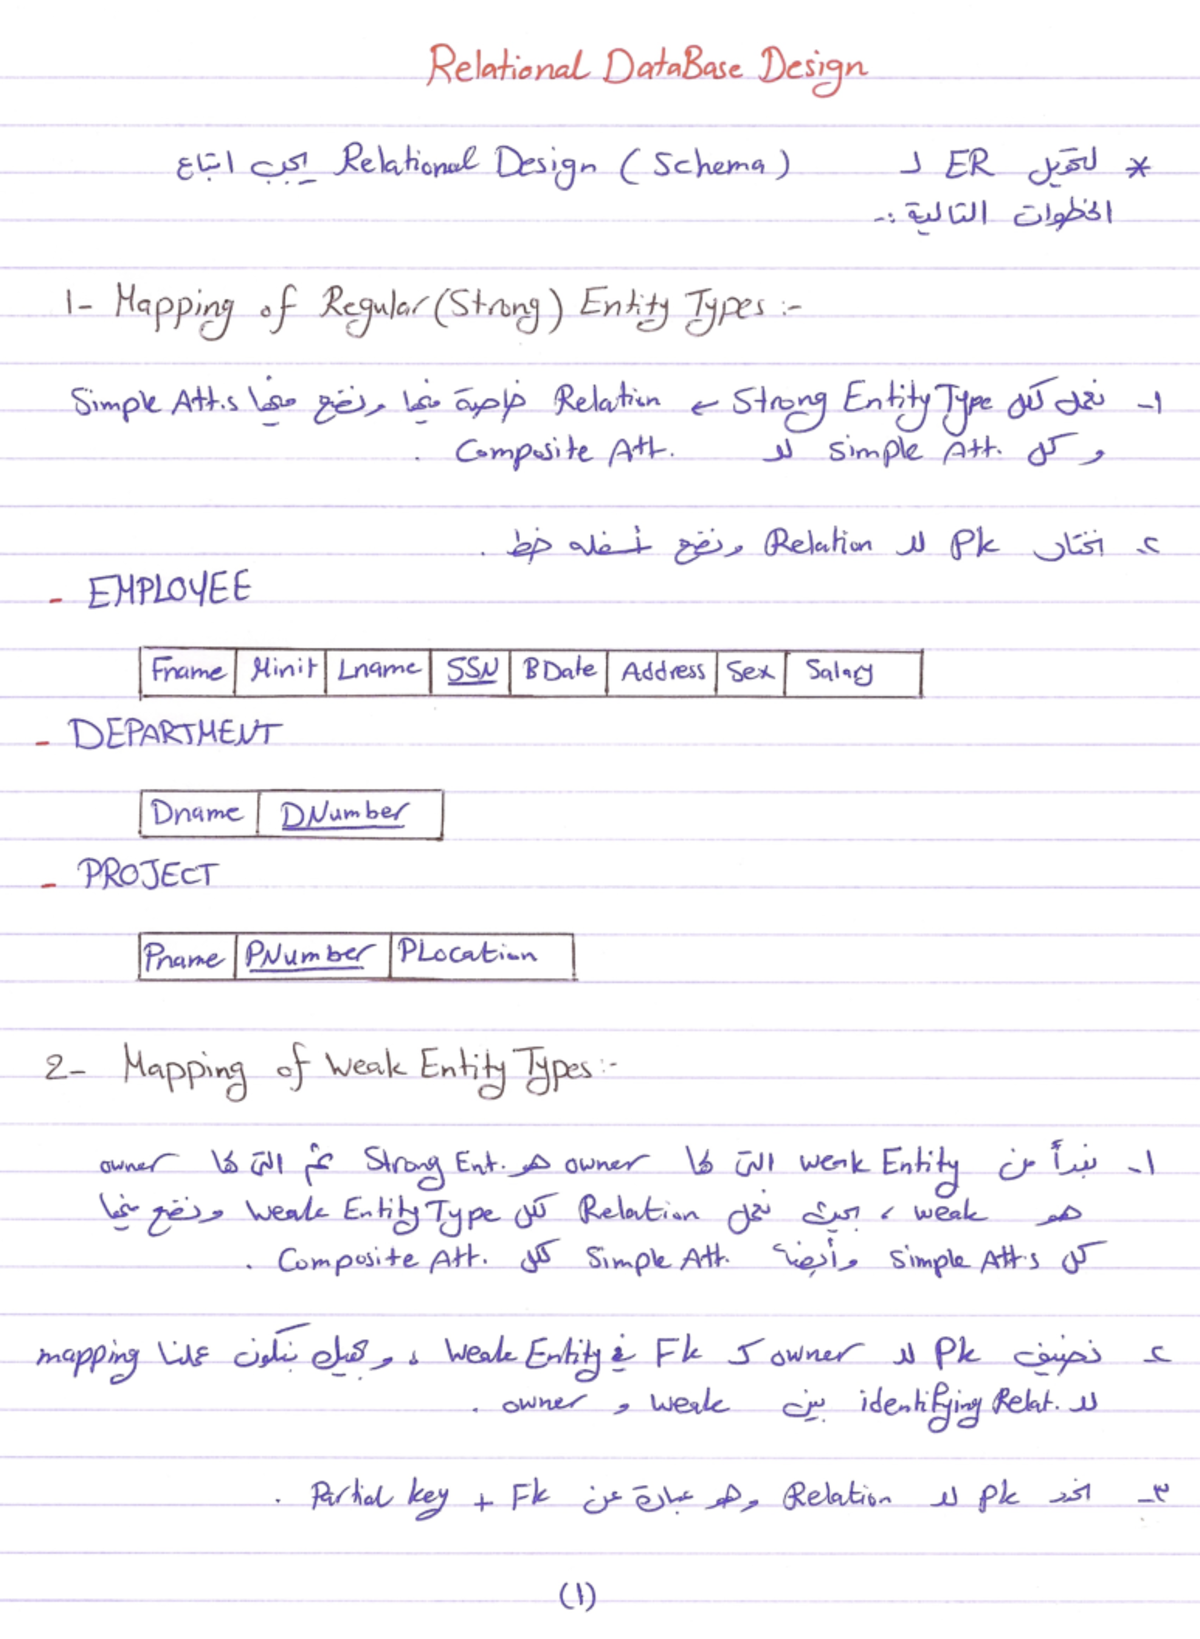 Relational DataBase Design
* لتحويل ER لـ Relational Design (Schema) يجب اتباع
الخطوات التالية :-
1- Mapping of Regular (Strong) Entity Types :-
١- نعمل لكل Strong Entity Type ← Relation خاصة فيها ونضع فيها Simple Att.s
و كل Simple Att. للـ Composite Att. .
٢- نختار Pk للـ Relation ونضع أسفله خط .
- EMPLOYEE
Fname Minit Lname SSN BDate Address Sex Salary
- DEPARTMENT
Dname DNumber
- PROJECT
Pname PNumber PLocation
2- Mapping of Weak Entity Types :-
١- نبدأ من weak Entity التي لها owner هو Strong Ent. ثم التي لها owner
هو weak ، بحيث نعمل Relation لكل Weak Entity Type ونضع فيها
كل Simple Att.s وأيضاً Simple Att. لكل Composite Att. .
٢- نضيف Pk للـ owner كـ Fk في Weak Entity ، و بنكون عملنا mapping
للـ identifying Relat. بين weak و owner .
٣- نحدد Pk للـ Relation وهو عبارة عن Partial key + Fk .
(1)